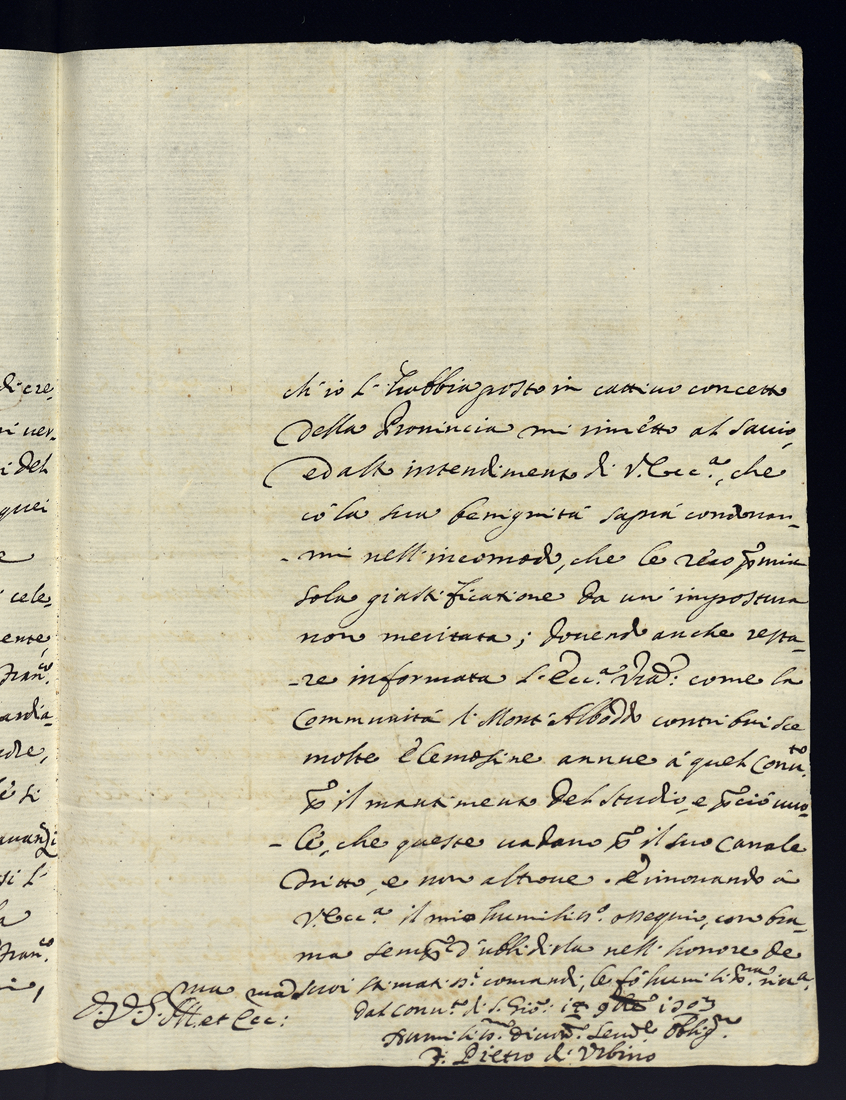 di cre
ni ver-
i del
quei
e
i cele-
ente,
Fran.co
ardia-
dre,
è si
avanzi
si l'
la
Fran.co
ni,
ch'io l'habbia posto in cattivo concetto
della Provincia mi rimetto al savio,
ed alto intendimento di V. Ecc.a, che
cō la sua benignità saprà condonar-
mi nell'incomodo, che le reco p mia
sola giustificatione da un'impostura
non meritata; dovendo anche resta-
re informata l'Ecc.a Vrā: come la
Communità di Mont'Alboddo contribuisce
molte elemosine annue à quel Conv.to
p il mantimento del studio, e p ciò vuo-
le, che queste vadano p il suo canale
dritto, e non altrove. Rinovando à
V. Ecc.a il mio humiliss.o ossequio, con bra-
ma semp d'ubbidirla nell'honore de
suoi stimatiss.i comandi, le fò humiliss.ma riv.a
dal Conv.to di S. Gio: 9bre 1703
D. V. S. Ill.ma et Ecc.ma:
Humiliss.o Divot.o Serv.e Oblig.o
F. Pietro di Urbino